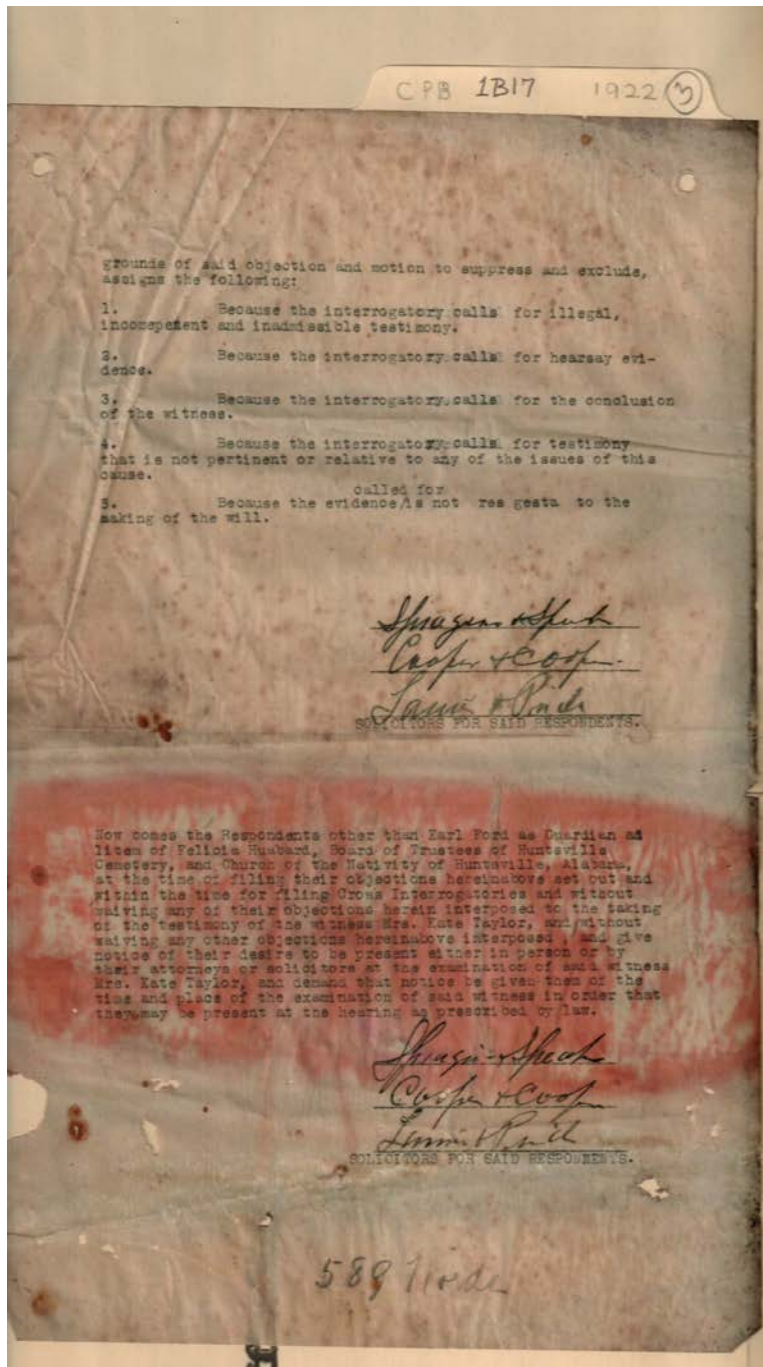 CPB 1B17 1922 3
grounds of said objection and motion to suppress and exclude,
assigns the following:
1. Because the interrogatory calls for illegal,
incompetent and inadmissible testimony.
2. Because the interrogatory calls for hearsay evi-
dence.
3. Because the interrogatory calls for the conclusion
of the witness.
4. Because the interrogatory calls for testimony
that is not pertinent or relative to any of the issues of this
cause.
called for
5. Because the evidence/is not res gesta to the
making of the will.
Cooper & Cooper
SOLICITORS FOR SAID RESPONDENTS.
Now comes the Respondents other than Earl Ford as Guardian ad
litem of Felicia Hubbard, Board of Trustees of Huntsville
Cemetery, and Church of the Nativity of Huntsville, Alabama,
at the time of filing their objections hereinabove set out and
within the time for filing Cross Interrogatories and without
waiving any of their objections herein interposed to the taking
of the testimony of the witness Mrs. Kate Taylor, and without
waiving any other objections hereinabove interposed, and give
notice of their desire to be present either in person or by
their attorneys or solicitors at the examination of said witness
Mrs. Kate Taylor, and demand that notice be given them of the
time and place of the examination of said witness in order that
they may be present at the hearing as prescribed by law.
Cooper & Cooper
SOLICITORS FOR SAID RESPONDENTS.
589